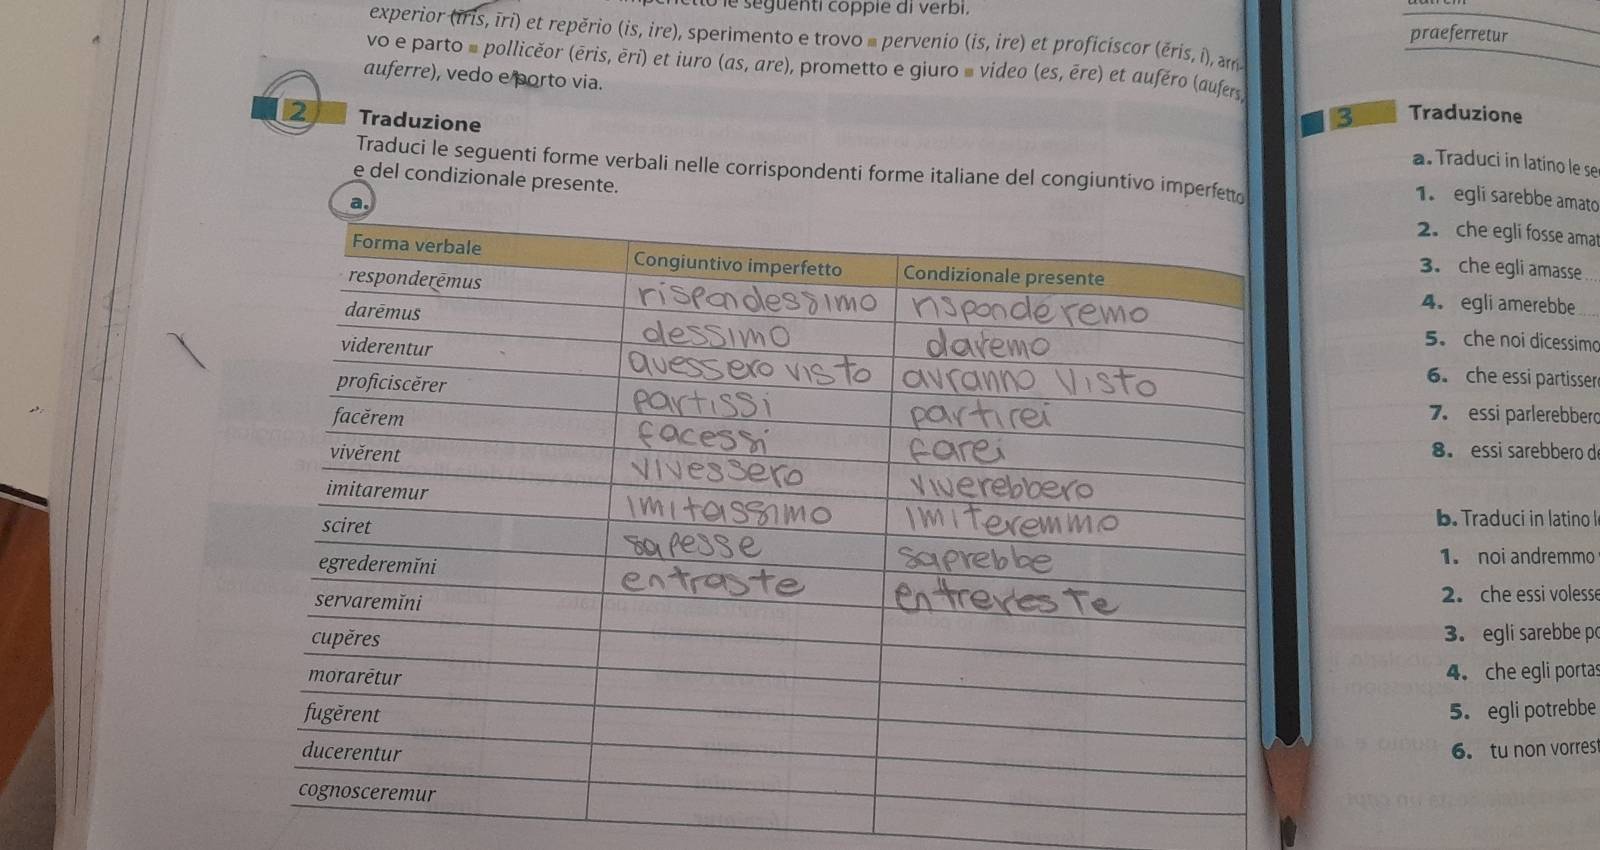 le seguenti coppie di verbi.
experior (īris, īri) et repĕrio (is, ire), sperimento e trovo ■ pervenio (is, ire) et proficiscor (ĕris, i), arri-
vo e parto ■ pollicĕor (ēris, ēri) et iuro (as, are), prometto e giuro ■ video (es, ēre) et aufĕro (aufers,
auferre), vedo e porto via.
2 Traduzione
Traduci le seguenti forme verbali nelle corrispondenti forme italiane del congiuntivo imperfetto
e del condizionale presente.
a.
Forma verbale Congiuntivo imperfetto Condizionale presente
responderēmus rispondessimo risponderemo
darēmus dessimo daremo
viderentur avessero visto avranno visto
proficiscĕrer partissi partirei
facĕrem facessi farei
vivĕrent vivessero viverebbero
imitaremur imitassimo imiteremmo
sciret sapesse saprebbe
egrederemĭni entraste entrereste
servaremĭni
cupĕres
morarētur
fugĕrent
ducerentur
cognosceremur
praeferretur
3 Traduzione
a. Traduci in latino le se
1. egli sarebbe amato
2. che egli fosse amat
3. che egli amasse
4. egli amerebbe
5. che noi dicessimo
6. che essi partisser
7. essi parlerebbero
8. essi sarebbero de
b. Traduci in latino l
1. noi andremmo
2. che essi volesse
3. egli sarebbe po
4. che egli portas
5. egli potrebbe
6. tu non vorrest